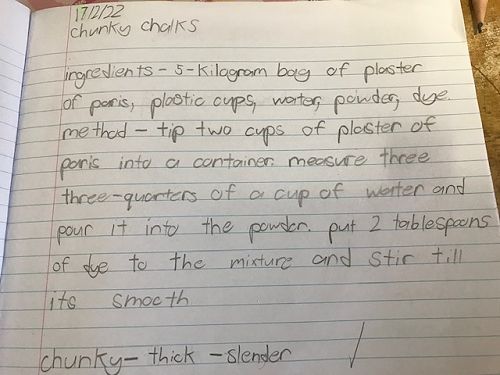 17/2/22
chunky chalks
ingredients - 5-kilogram bag of plaster
of paris, plastic cups, water, powder, dye.
method - tip two cups of plaster of
paris into a container. measure three
three-quarters of a cup of water and
pour it into the powder. put 2 tablespoons
of dye to the mixture and stir till
its smooth
chunky - thick - slender